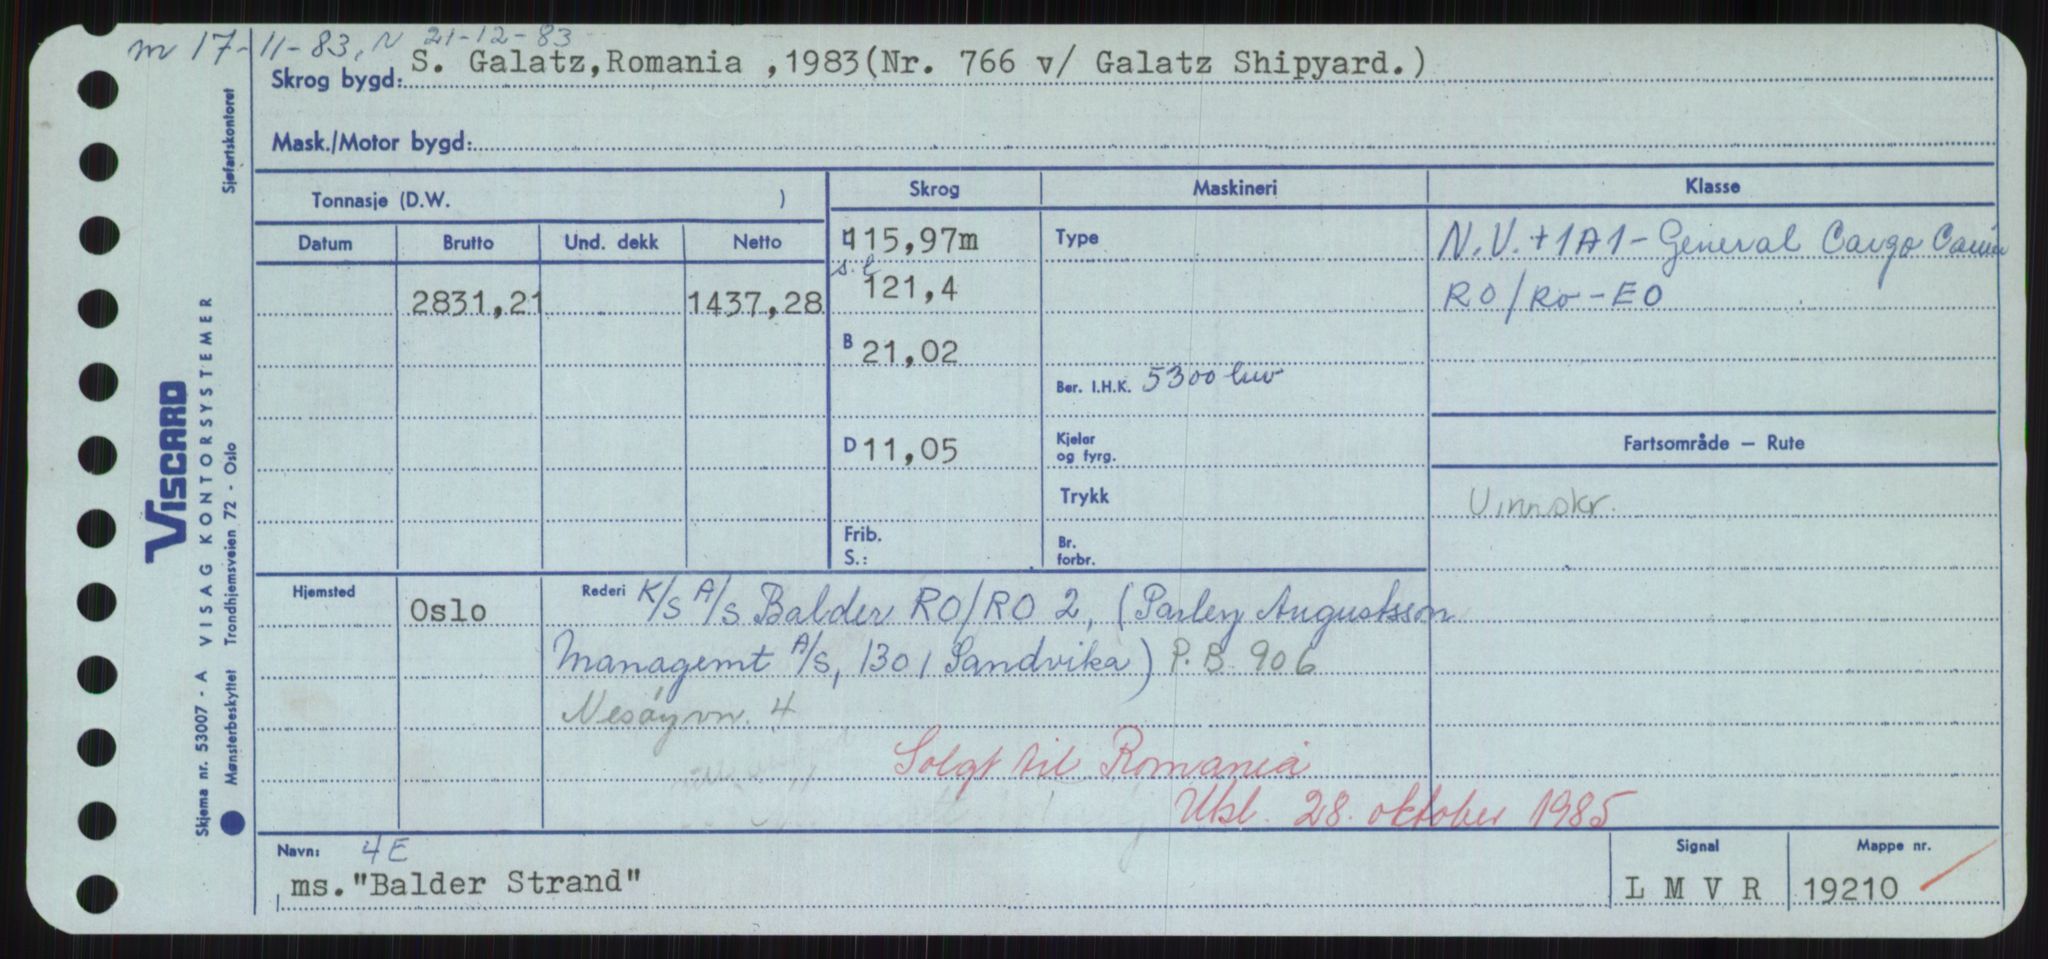 m 17-11-83, N 21-12-83
Skrog bygd: S. Galatz,Romania ,1983(Nr. 766 v/ Galatz Shipyard.)
Mask./Motor bygd:
Tonnasje (D.W. )
Skrog Maskineri Klasse
Datum Brutto Und. dekk Netto
L 115,97m Type N.V.+1A1- General Cargo
s.l 121,4 RO/Ro-EO
2831,21 1437,28
B 21,02
Ber. I.H.K. 5300
D 11,05 Kjelar og fyrg.
Fartsområde — Rute
Trykk
Uinnskr.
Frib. S.: Br. forbr.
Hjemsted Oslo
Rederi K/S A/S Balder RO/RO 2, (Parley Augustsson
Managemt A/S, 1301 Sandvika) P.B. 906
Nesøyvn. 4
Solgt til Romania
Utsl. 28. oktober 1985
Navn: 4E
ms."Balder Strand"
Signal L M V R
Mappe nr. 19210
Sjøfartskontoret
VISCARD
VISAG KONTORSYSTEMER
Trondhjemsveien 72 - Oslo
Skjema nr. 53007 - A
Mønsterbeskyttet